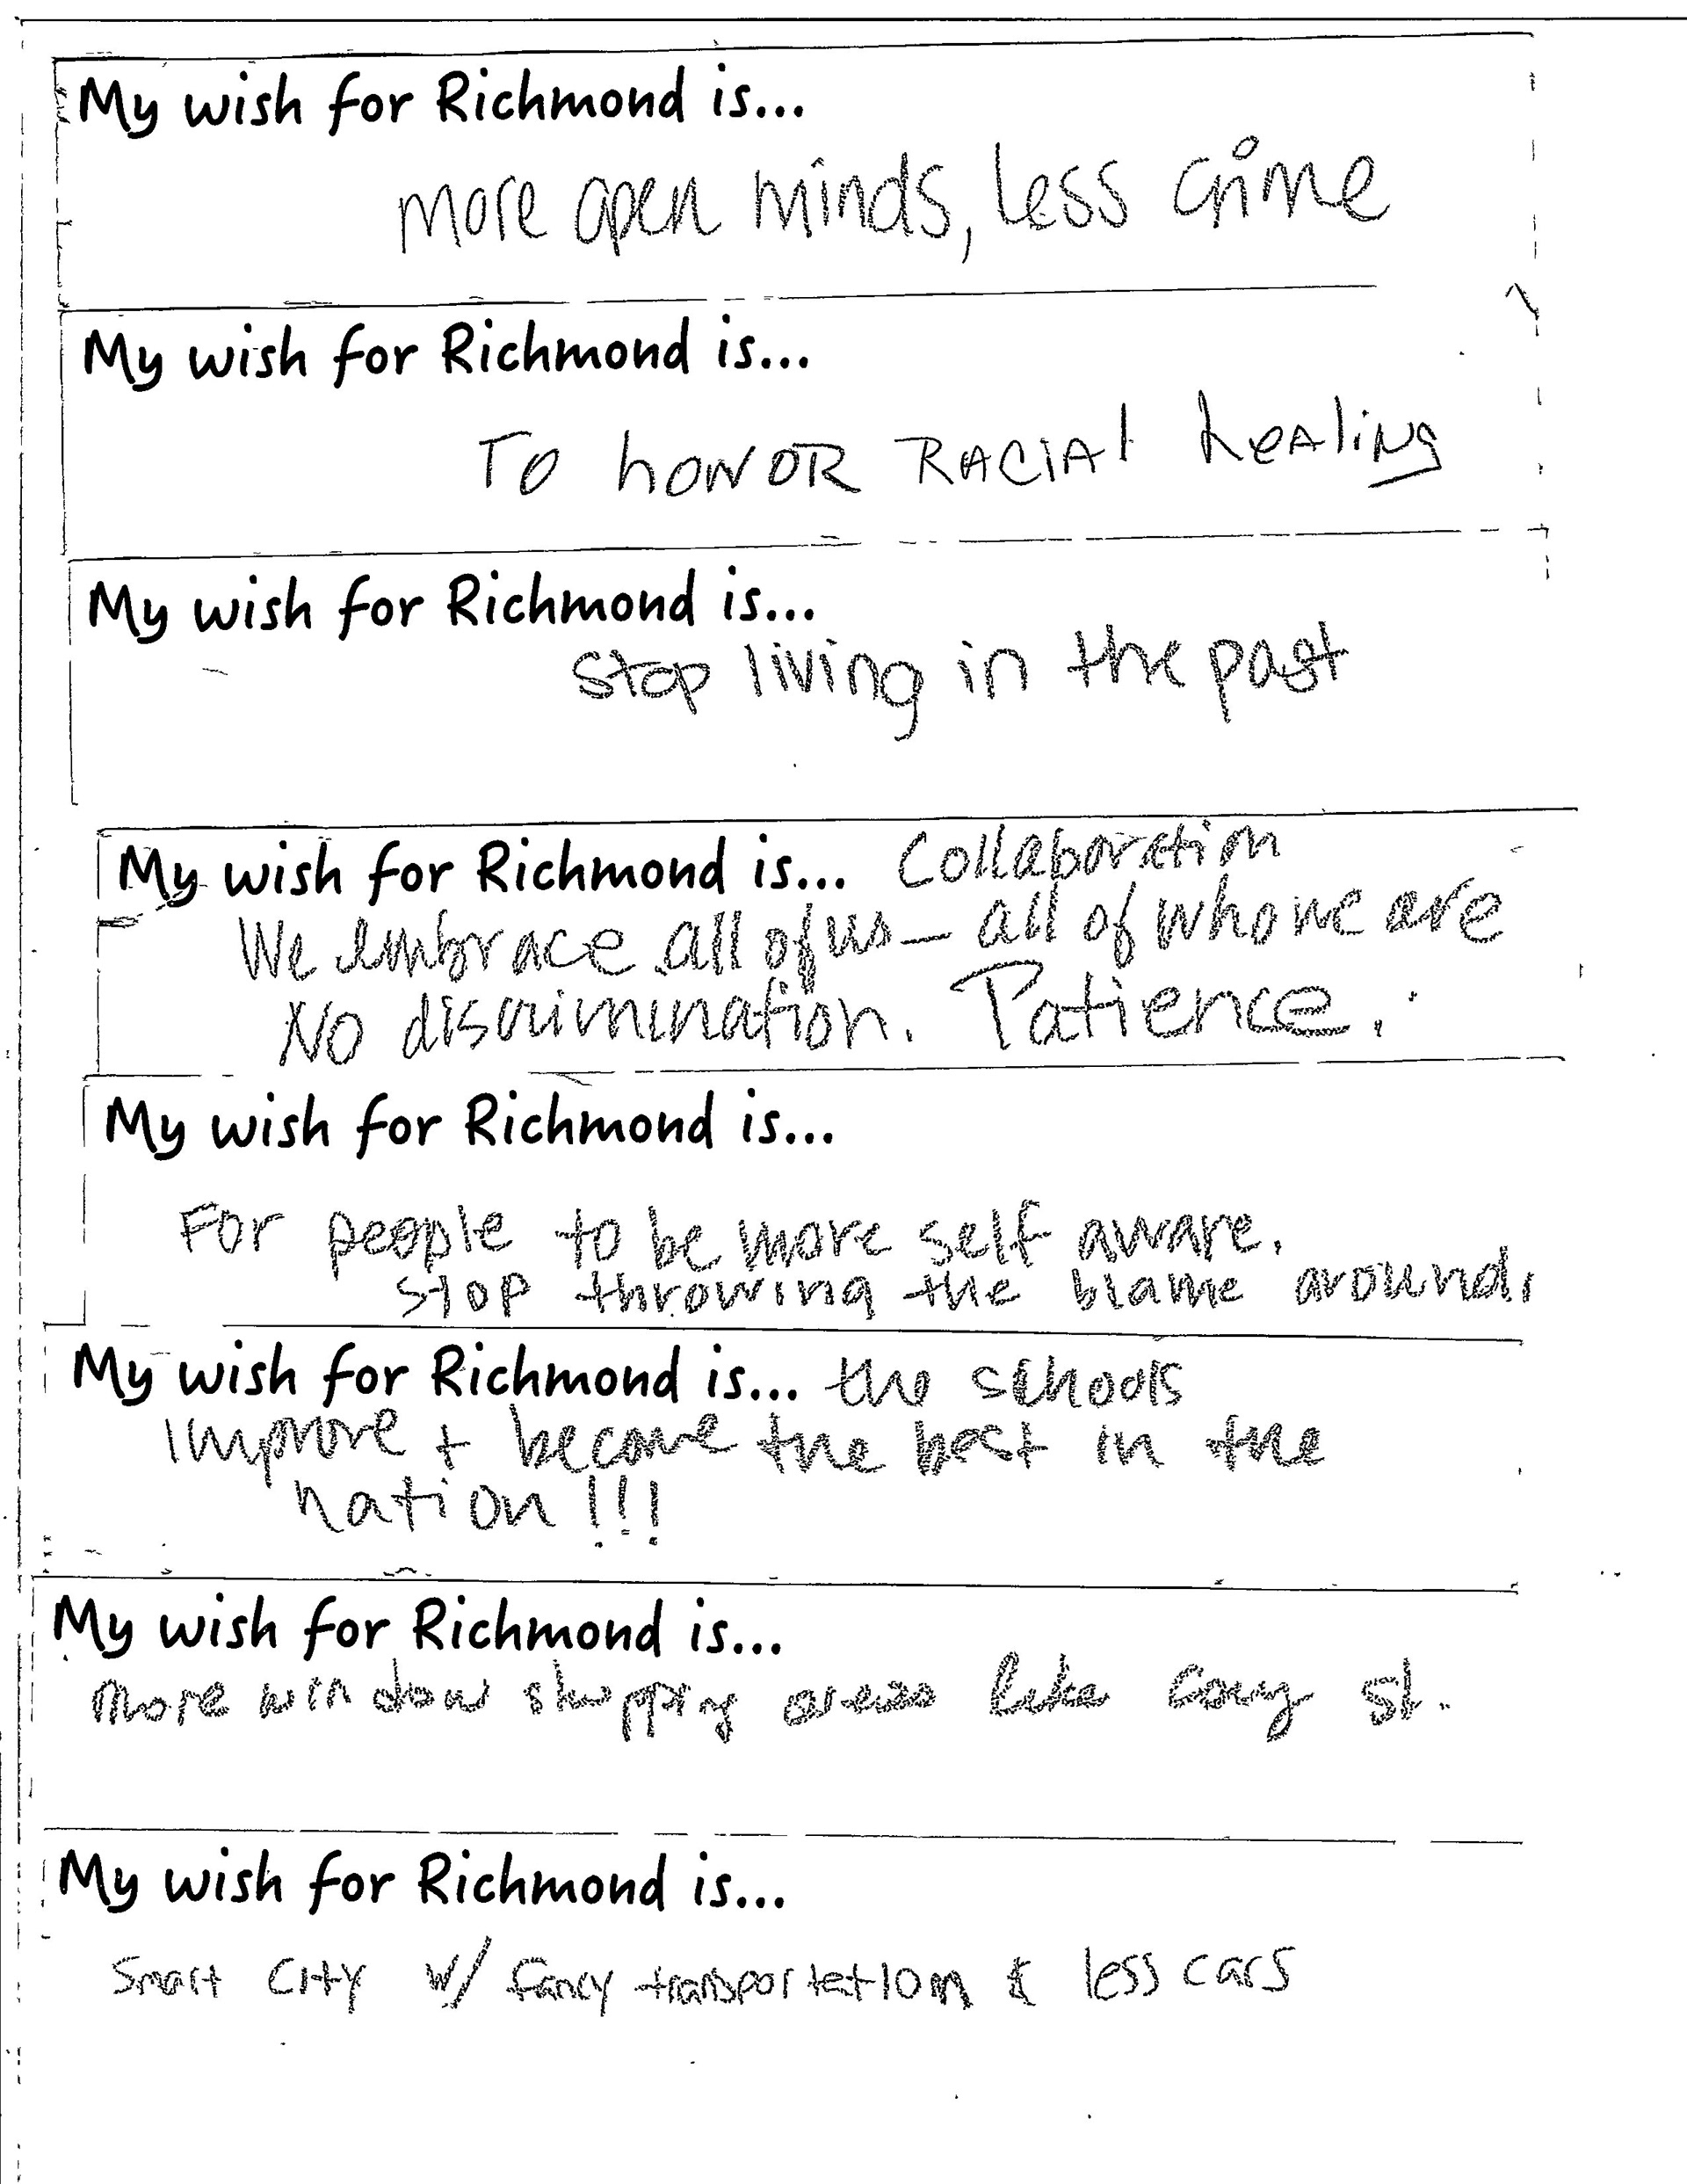 My wish for Richmond is...
more open minds, less crime
My wish for Richmond is...
To honor racial healing
My wish for Richmond is...
Stop living in the past
My wish for Richmond is... Collaboration
We embrace all of us – all of who we are
No discrimination. Patience.
My wish for Richmond is...
For people to be more self aware.
Stop throwing the blame around.
My wish for Richmond is... the schools
Improve + become the best in the
nation!!!
My wish for Richmond is...
More window shopping areas like Cary St.
My wish for Richmond is...
Smart City w/ fancy transportation & less cars